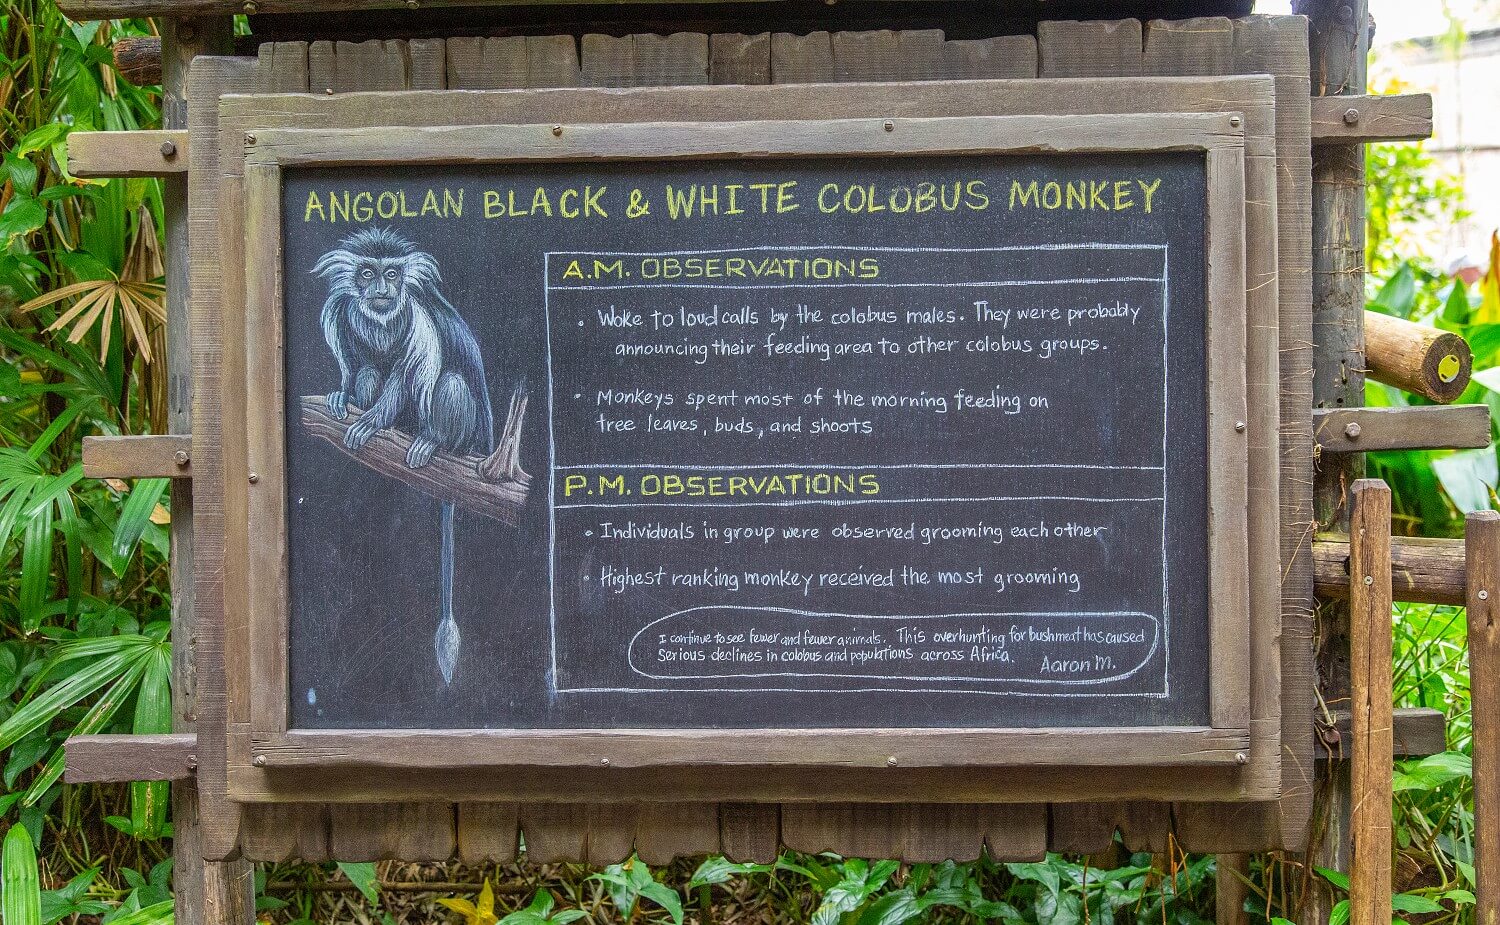 ANGOLAN BLACK & WHITE COLOBUS MONKEY
A.M. OBSERVATIONS
• Woke to loud calls by the colobus males. They were probably
announcing their feeding area to other colobus groups.
• Monkeys spent most of the morning feeding on
tree leaves, buds, and shoots
P.M. OBSERVATIONS
• Individuals in group were observed grooming each other
• Highest ranking monkey received the most grooming
I continue to see fewer and fewer animals. This overhunting for bushmeat has caused
serious declines in colobus and populations across Africa.
Aaron M.